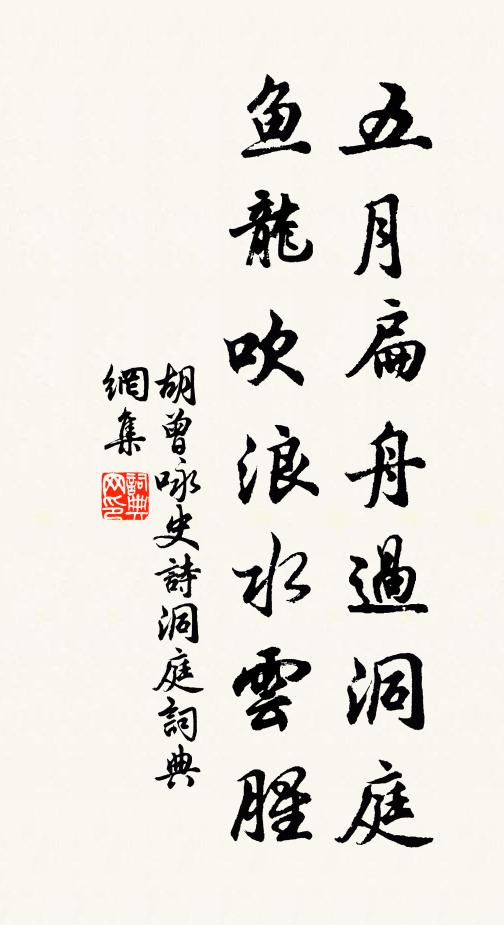 五月扁舟過洞庭
鱼龍吹浪水雲腥
胡曾咏史詩洞庭詞典
網集
詞典網印